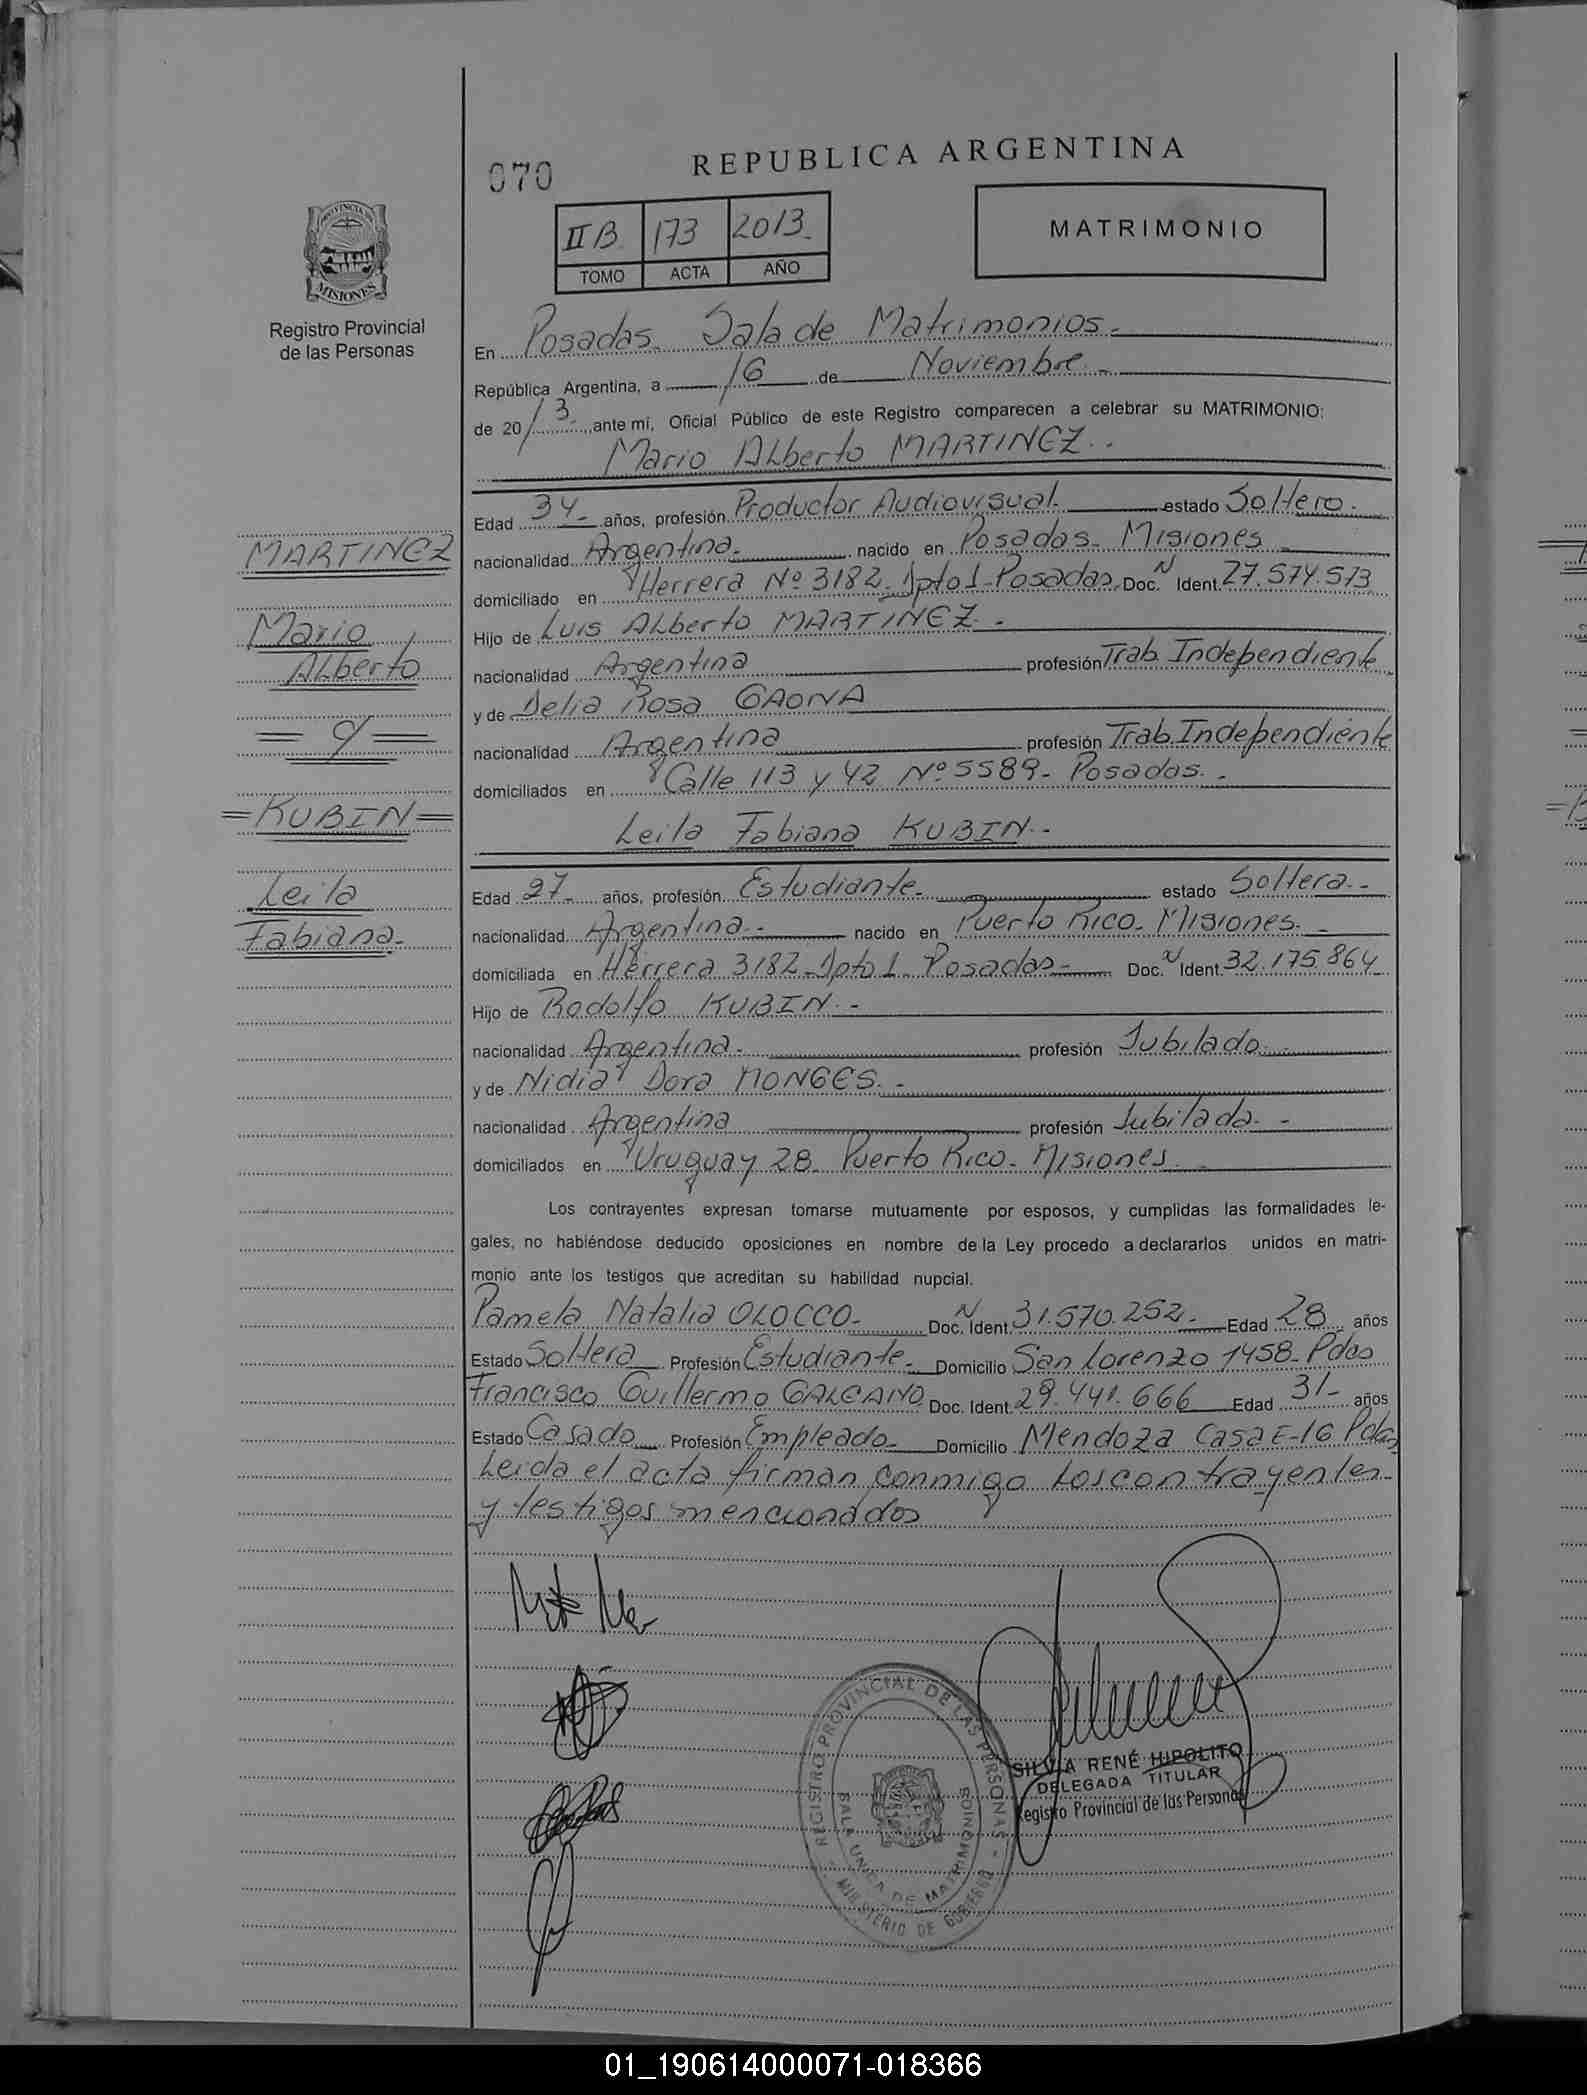 070
REPUBLICA ARGENTINA
II B 173 2013
TOMO ACTA AÑO
MATRIMONIO
PROVINCIA DE
MISIONES
Registro Provincial
de las Personas
En Posadas. Sala de Matrimonios.-
República Argentina, a 16 de Noviembre.-
de 2013- ante mí, Oficial Público de este Registro comparecen a celebrar su MATRIMONIO:
Mario Alberto MARTINEZ.-
Edad 34- años, profesión Productor Audiovisual. estado Soltero.-
nacionalidad Argentina.- nacido en Posadas- Misiones-
domiciliado en Herrera Nº 3182- Dpto 1-Posadas. Doc. N Ident. 27.574.573
Hijo de Luis Alberto MARTINEZ.-
nacionalidad Argentina profesión Trab. Independiente
y de Delia Rosa GAONA
nacionalidad Argentina profesión Trab. Independiente
domiciliados en Calle 113 y 42 Nº 5589- Posadas.-
Leila Fabiana KUBIN.-
Edad 27- años, profesión Estudiante. estado Soltera.-
nacionalidad Argentina.- nacido en Puerto Rico- Misiones.-
domiciliada en Herrera 3182-Dpto 1- Posadas- Doc. N Ident. 32.175.864
Hijo de Rodolfo KUBIN.-
nacionalidad Argentina- profesión Jubilado.-
y de Nidia Dora MONGES.-
nacionalidad Argentina profesión Jubilada.-
domiciliados en Uruguay 28- Puerto Rico- Misiones.-
Los contrayentes expresan tomarse mutuamente por esposos, y cumplidas las formalidades le-
gales, no habiéndose deducido oposiciones en nombre de la Ley procedo a declararlos unidos en matri-
monio ante los testigos que acreditan su habilidad nupcial.
Pamela Natalia OLOCCO- Doc. N Ident 31.570.252- Edad 28 años
Estado Soltera Profesión Estudiante- Domicilio San Lorenzo 1458- Pdas
Francisco Guillermo GALEANO Doc. Ident. 29.441.666 Edad 31- años
Estado Casado Profesión Empleado- Domicilio Mendoza Casa E-16 Pdas
Leida el acta firman conmigo los contrayentes-
y testigos mencionados
MARTINEZ
Mario
Alberto
= y =
=KUBIN=
Leila
Fabiana-
REGISTRO PROVINCIAL DE LAS PERSONAS - MINISTERIO DE GOBIERNO -
SALA UNICA DE MATRIMONIOS
SILVIA RENÉ HIPOLITO
DELEGADA TITULAR
Registro Provincial de las Personas
01_190614000071-018366